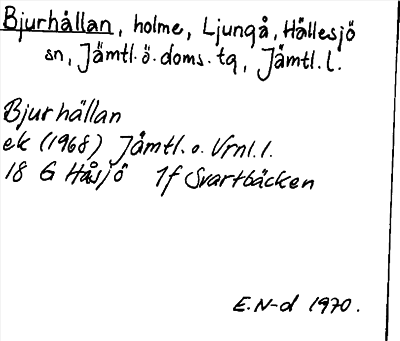 Bjurhållan, holme, Ljungå, Hällesjö
sn, Jämtl. ö. doms. tg, Jämtl. l.
Bjurhällan
ek (1968) Jämtl. o. Vrnl. l.
18 G Håsjö 1f Svartbäcken
E. N-d 1970.